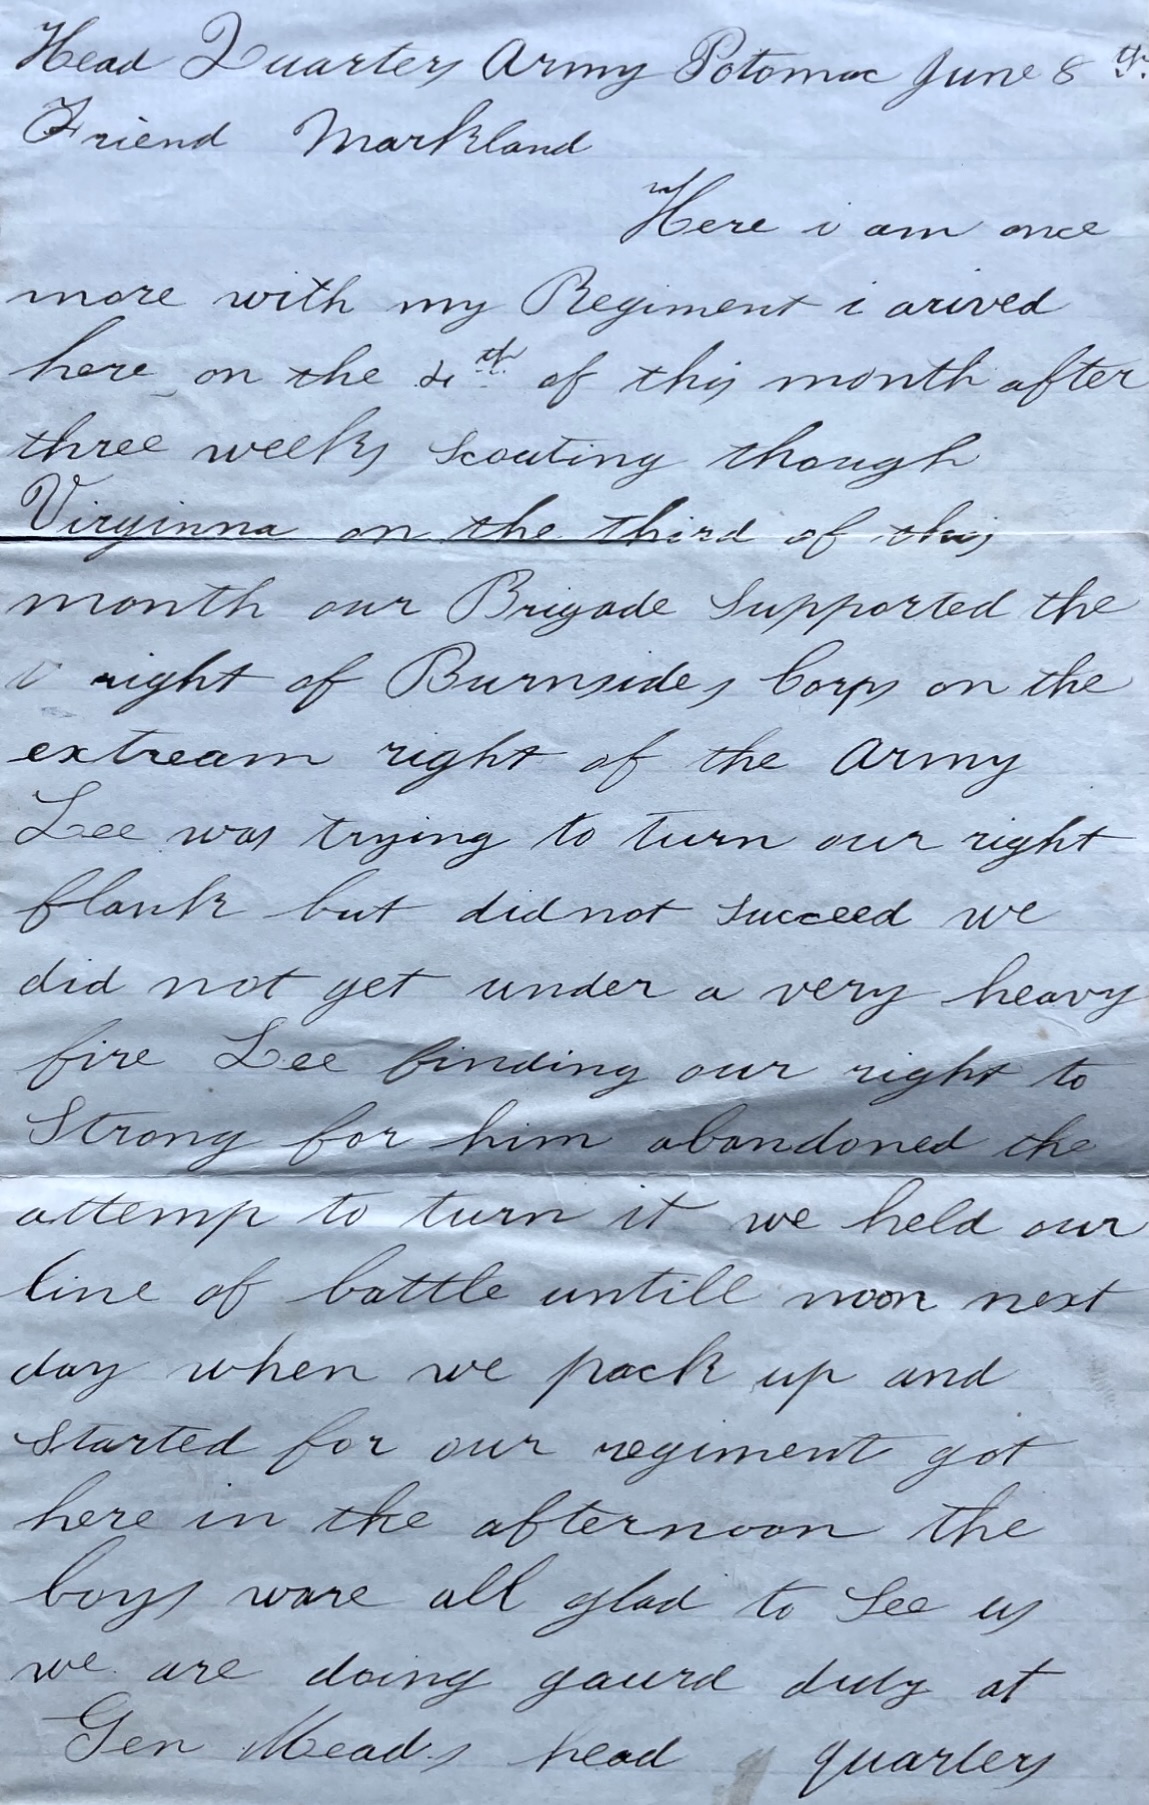 Head Quarters Army Potomac June 8th
Friend Markland
Here i am once
more with my Regiment i arived
here on the 4th of this month after
three weeks scouting though
Virginna on the third of this
month our Brigade supported the
right of Burnsides Corps on the
extream right of the Army
Lee was trying to turn our right
flank but did not succeed we
did not get under a very heavy
fire Lee finding our right to
Strong for him abandoned the
attemp to turn it we held our
line of battle untill noon next
day when we pack up and
started for our regiment got
here in the afternoon the
boys ware all glad to See us
we are doing gaurd duty at
Gen Meads head quarters